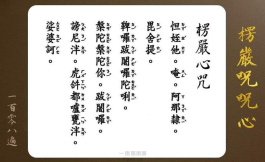 楞嚴咒咒心
楞嚴心咒
怛姪他。唵。阿那隸。
毘舍提。
鞞囉跋闍囉陀唎。
槃陀槃陀你。跋闍囉。
謗尼泮。虎𤙖都嚧甕泮。
娑婆訶。
一百零八遍